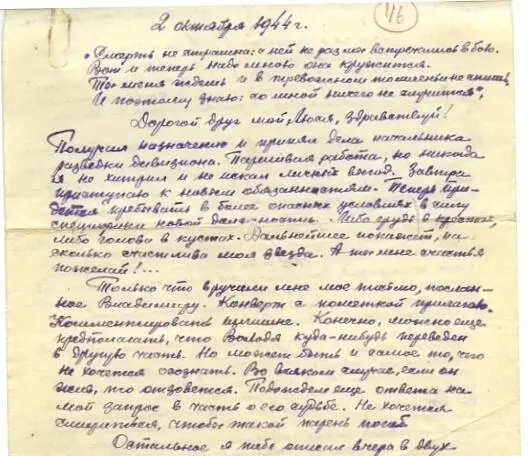 46
2 октября 1944 г.
"Смерть не страшна: с ней не раз мы встречались в бою.
Вот и теперь надо мною она кружится.
Ты меня ждешь и в тревожном томленьи не спишь,
И поэтому знаю: со мной ничего не случится",
Дорогой друг мой, Люся, здравствуй!
Получил назначение и принял дела начальника
разведки дивизиона. Паршивая работа, но никогда
я не хитрил и не искал личных выгод. Завтра
приступаю к новым обязанностям. Теперь при-
дется пребывать в более опасных условиях в силу
специфики новой должности. Либо грудь в крестах,
либо голова в кустах. Дальнейшее покажет, на
сколько счастлива моя звезда. А ты мне счастья
пожелай!...
Только что вручили мне мое письмо, послан-
ное Владимиру. Конверт с пометкой прилагаю.
Комментировать излишне. Конечно, можно еще
предполагать, что Володя куда-нибудь переведен
в другую часть. Но может быть и самое то, чего
не хочется осознать. Во всяком случае, если он
жив, то отзовется. Подождем еще ответа на
мой запрос в часть о его судьбе. Не хочется
смириться, чтобы такой парень погиб.
Остальное я тебе описал вчера в двух